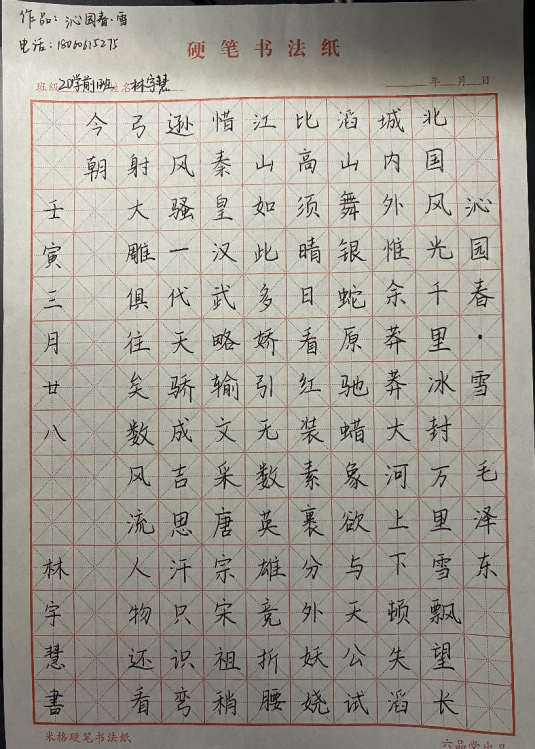 作品：沁园春·雪
电话：18060615275
硬笔书法纸
班级 20学前1班 姓名 林宇慧 年 月 日
沁园春·雪 毛泽东
北国风光千里冰封万里雪飘望长
城内外惟余莽莽大河上下顿失滔
滔山舞银蛇原驰蜡象欲与天公试
比高须晴日看红装素裹分外妖娆
江山如此多娇引无数英雄竞折腰
惜秦皇汉武略输文采唐宗宋祖稍
逊风骚一代天骄成吉思汗只识弯
弓射大雕俱往矣数风流人物还看
今朝
壬寅三月廿八 林宇慧書
米格硬笔书法纸
六品堂出品